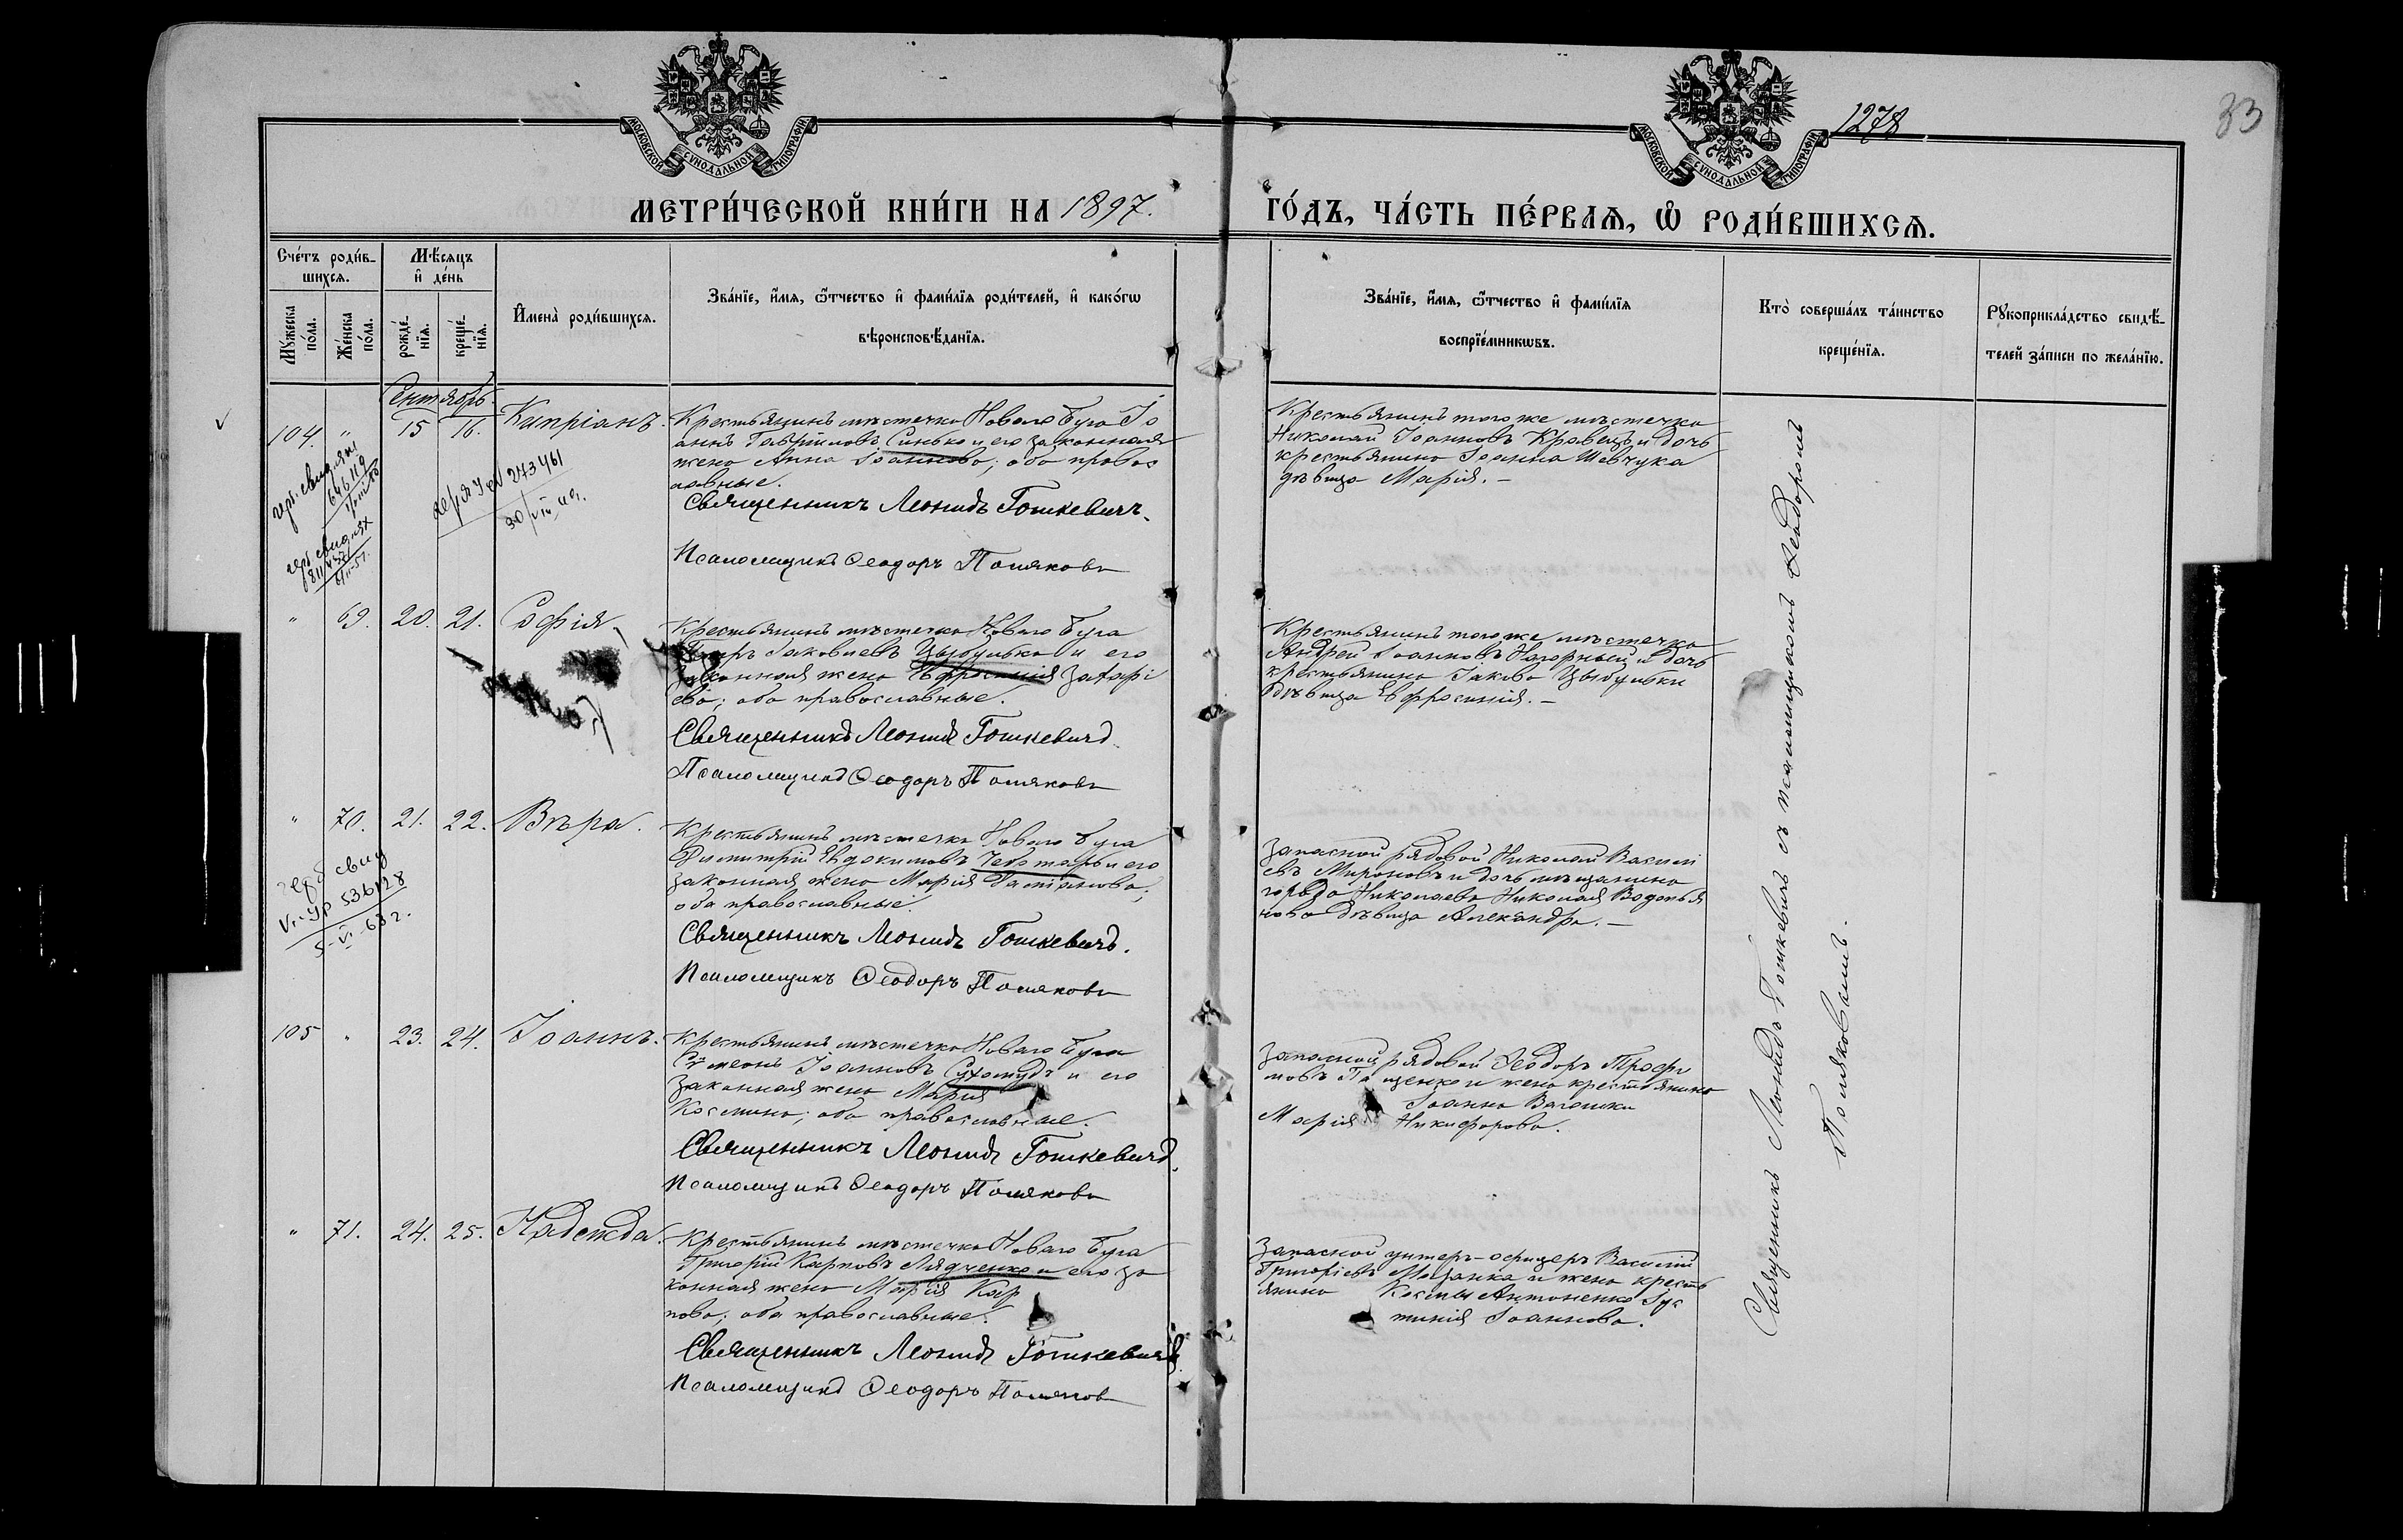 МОСКОВСКОЙ СѴНОДАЛЬНОЙ ТИПОГРАФІИ
МОСКОВСКОЙ СѴНОДАЛЬНОЙ ТИПОГРАФІИ
1278
33
МЕТРИ́ЧЕСКОЙ КНИ́ГИ НА 1897.
ГО́ДЪ, ЧА́СТЬ ПЕ́РВАѦ, Ѿ РОДИ́ВШИХСѦ.
Сче́тъ роди́в-
шихсѧ.
Мѣ́сяцъ
и҆ де́нь
Мꙋ́жеска
по́ла.
Же́нска
по́ла.
рожде́-
нїѧ.
креще́-
нїѧ.
И҆мена̀ роди́вшихсѧ.
Зва́нїе, и҆́мѧ, ѿ́чество и҆ фами́лїѧ роди́телей, и҆ како́гѡ
вѣроисповѣ́данїѧ.
Зва́нїе, и҆́мѧ, ѿ́чество и҆ фами́лїѧ
воспрїе́мникѡвъ.
Кто̀ соверша́лъ та́инство
креще́нїѧ.
Рꙋкоприкла́дство свидѣ́-
телей за́писи по жела́нїю.
Сентябрь.
104. " 15 16. Кипріанъ.
Крестьянинъ мѣстечка Новаго Буга Іо
аннъ Гавріиловъ Синько и его законная
жена Анна Іоаннова; оба правос
лавные.
Священникъ Леонидъ Гошкевичъ.
Псаломщикъ Ѳеодоръ Поляковъ
Крестьянинъ того же мѣстечка
Николай Іоанновъ Кравецъ и дочь
крестьянина Іоанна Шевчука
дѣвица Марія. –
273461
" 69. 20. 21. Софія
Крестьянинъ мѣстечка Новаго Буга
Іаковлевъ Цыбулько и его
законная жена Евфросинія Захарі
ева; оба православные.
Священникъ Леонидъ Гошкевичъ
Псаломщикъ Ѳеодоръ Поляковъ
Крестьянинъ того же мѣстечка
Андрей Іоанновъ Нагорный и дочь
крестьянина Іакова Цыбульки
дѣвица Евфросинія. –
" 70. 21. 22. Вѣра.
герб свид
V-УР 536128
5-VI-63 г.
Крестьянинъ мѣстечка Новаго Буга
Димитрій Евдокимовъ Чеботарь и его
законная жена Марія
оба православные.
Священникъ Леонидъ Гошкевичъ.
Псаломщикъ Ѳеодоръ Поляковъ
Запасной рядовой Николай Василі
евъ Мироновъ и дочь мѣщанина
города Николаева Николая Водопья
нова дѣвица Александра. –
105 " 23. 24. Іоаннъ.
Крестьянинъ мѣстечка Новаго Буга
Симеонъ Іоанновъ и его
законная жена Марія
Космина; оба православные.
Священникъ Леонидъ Гошкевичъ.
Псаломщикъ Ѳеодоръ Поляковъ
Запасной рядовой Ѳеодоръ Трофи
мовъ и жена крестьянина
Іоанна
Марія Никифорова.
" 71. 24. 25. Надежда.
Крестьянинъ мѣстечка Новаго Буга
Григорій Карповъ Лядченко и его за
конная жена Марія Кар
пова; оба православные.
Священникъ Леонидъ Гошкевичъ
Псаломщикъ Ѳеодоръ Поляковъ
Запасной унтеръ-офицеръ Василій
Григорьевъ Мазанка и жена кресть
янина Космы Антоненко Іус
тинія Іоаннова.
Священникъ Леонидъ Гошкевичъ съ псаломщикомъ Ѳеодоромъ
Поляковымъ.